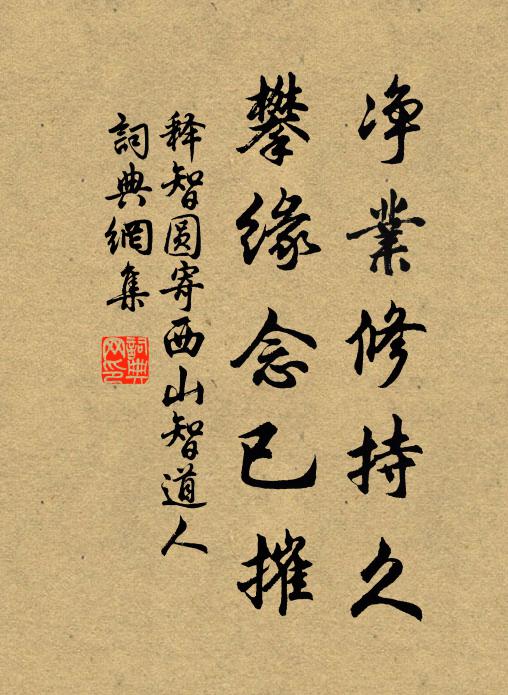 净業修持久
攀緣念已摧
释智圆寄西山智道人
詞典網集
詞典网印